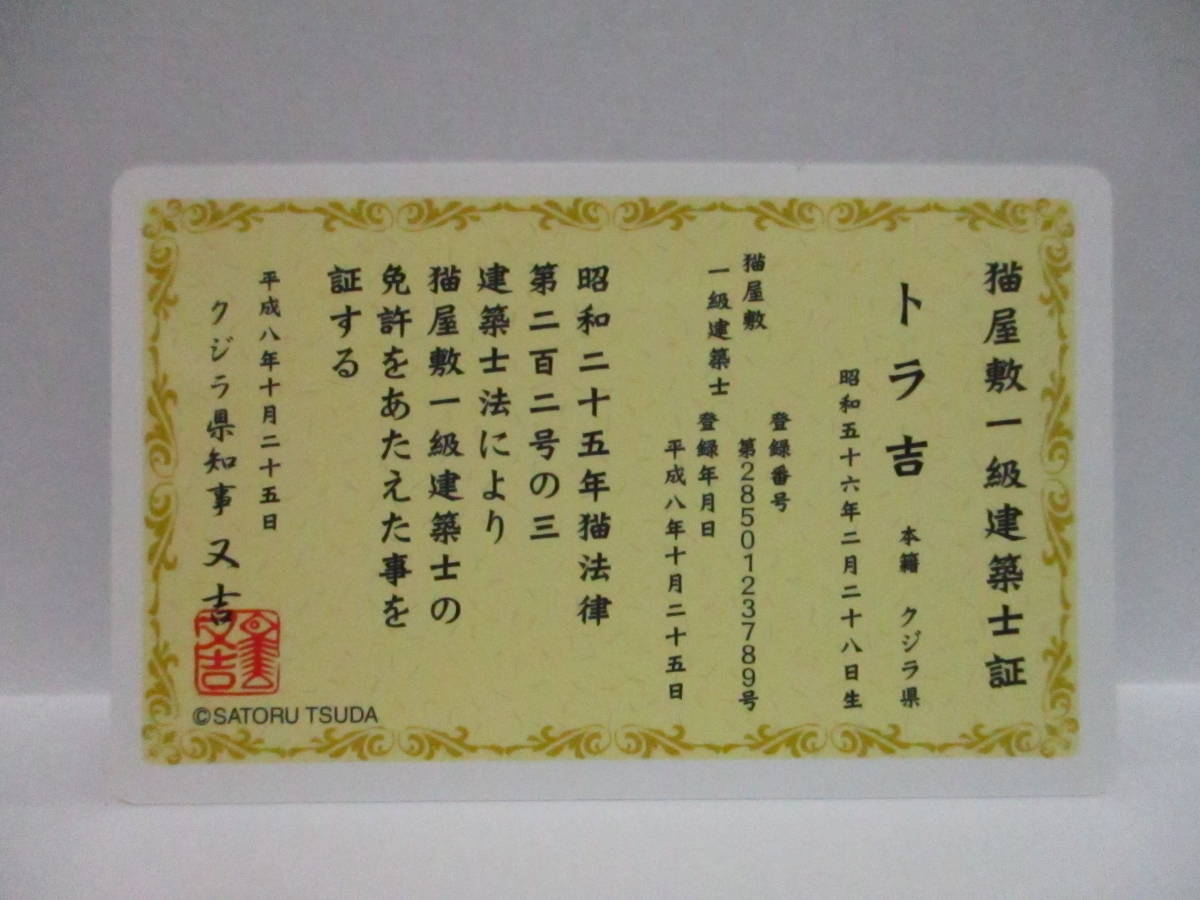 猫屋敷一級建築士証
トラ吉
本籍 クジラ県
昭和五十六年二月二十八日生
猫屋敷
一級建築士
登録番号
第2850123789号
登録年月日
平成八年十月二十五日
昭和二十五年猫法律
第二百二号の三
建築士法により
猫屋敷一級建築士の
免許をあたえた事を
証する
平成八年十月二十五日
クジラ県知事 又吉
又吉
©SATORU TSUDA